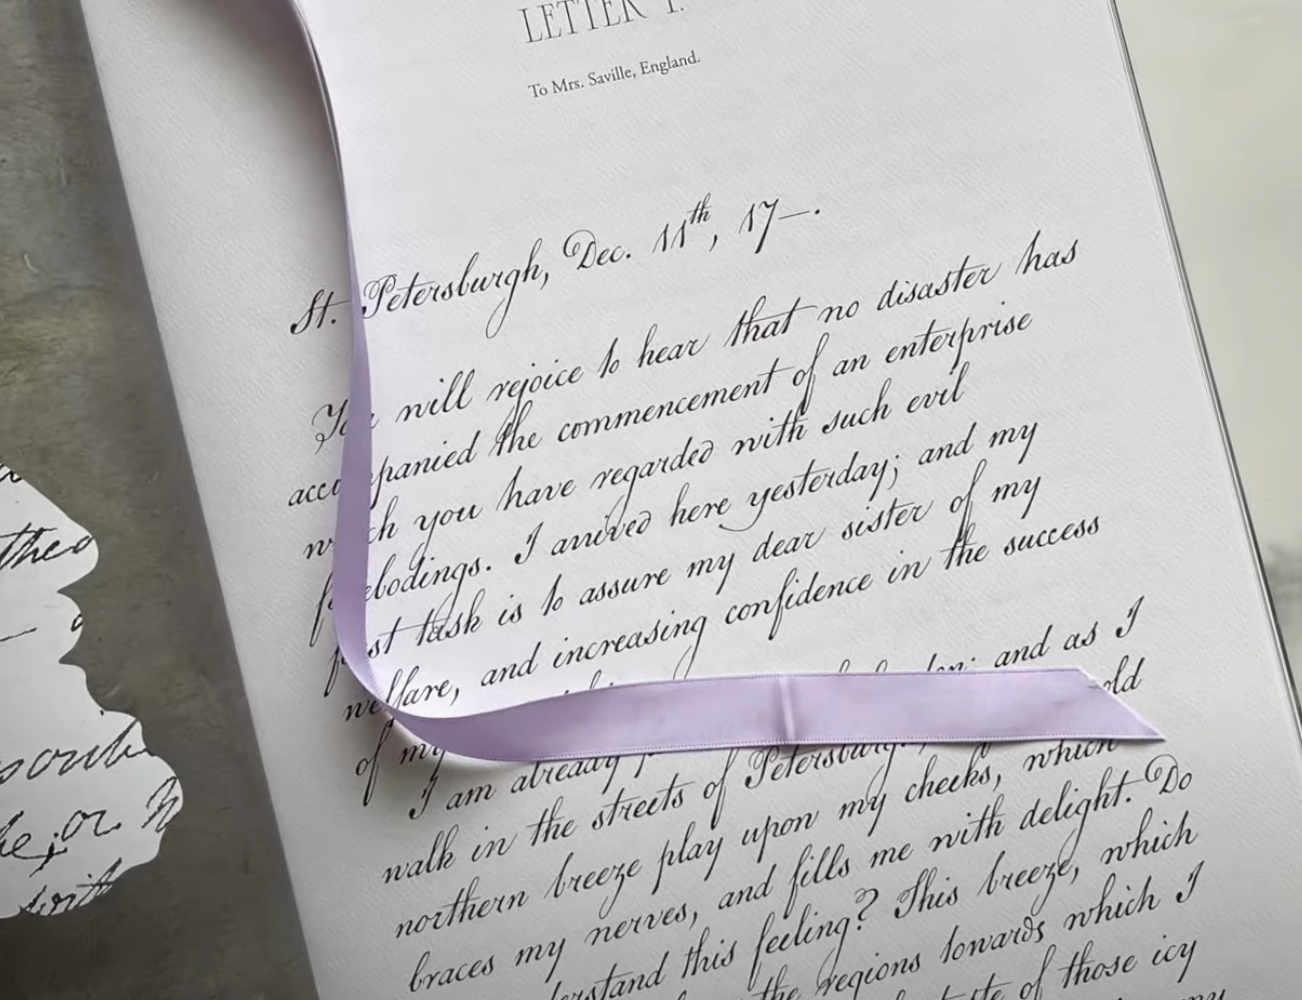 LETTER I.
To Mrs. Saville, England.
St. Petersburgh, Dec. 11th, 17—.
You will rejoice to hear that no disaster has
accompanied the commencement of an enterprise
which you have regarded with such evil
forebodings. I arrived here yesterday; and my
first task is to assure my dear sister of my
welfare, and increasing confidence in the success
of my
I am already
and as I
walk in the streets of Petersburgh,
old
northern breeze play upon my cheeks, which
braces my nerves, and fills me with delight. Do
understand this feeling? This breeze, which
the regions towards which I
of those icy
my